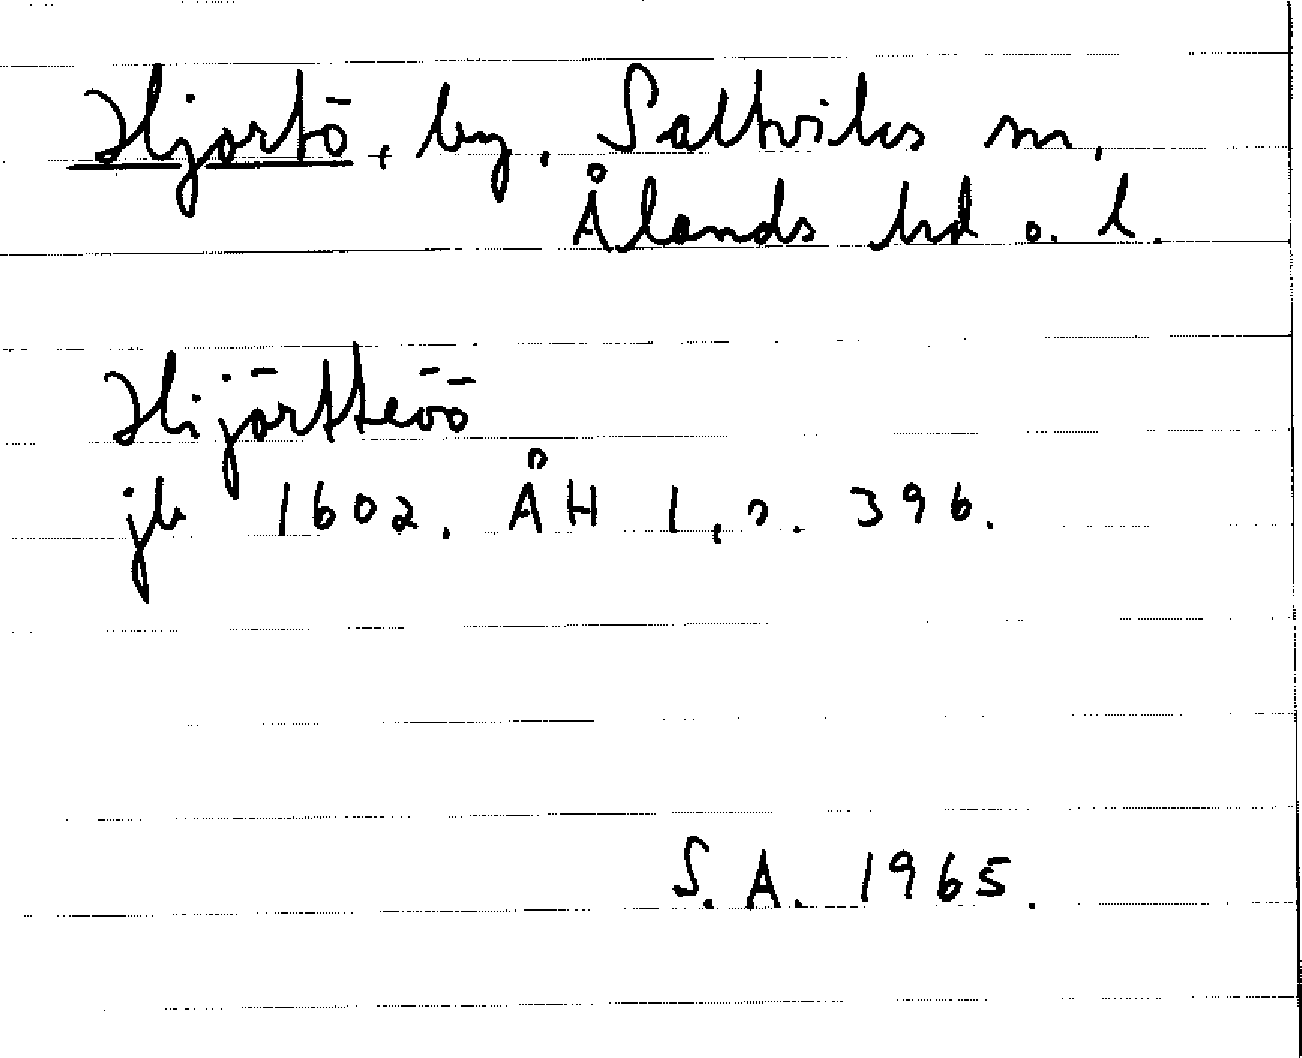 Hjortö, by, Saltviks sn,
Ålands hd o. l.
Hijörtteöö
jb 1602. ÅH 1, s. 396.
S.A. 1965.